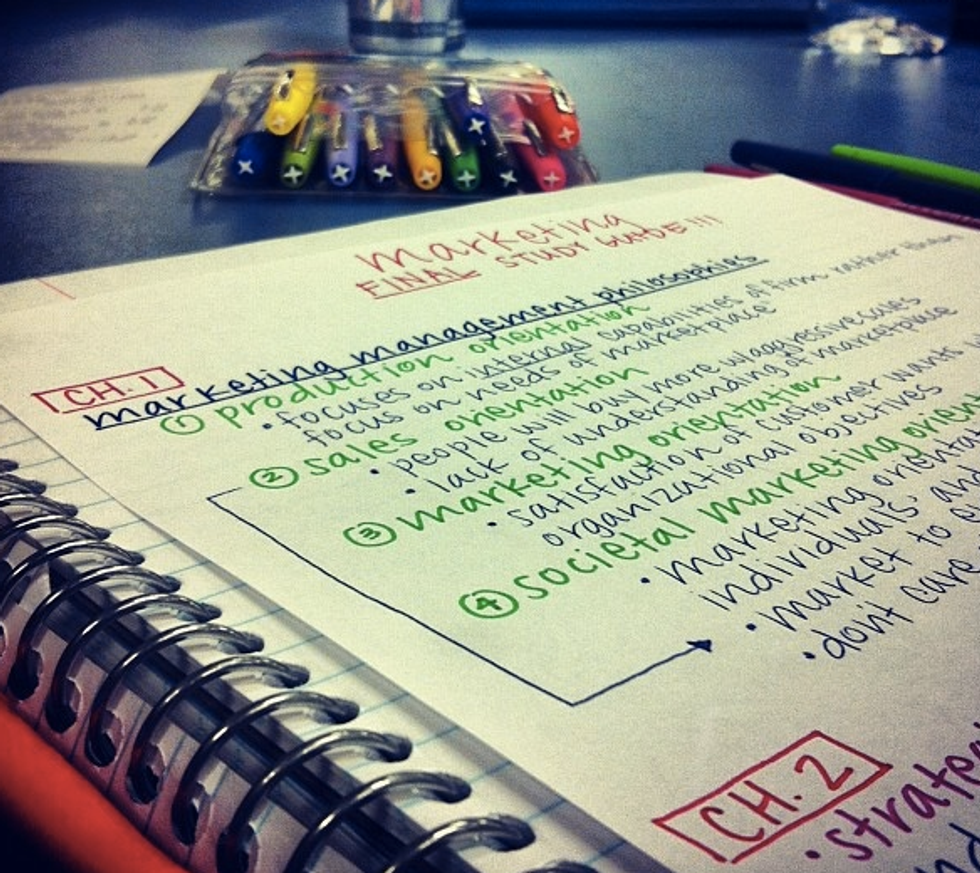 marketing
FINAL STUDY GUIDE!!!
CH. 1
marketing management philosophies
① production orientation
• focuses on internal capabilities of firm rather than
focus on needs of marketplace
② sales orientation
• people will buy more w/aggressive sales
• lack of understanding of marketplace
③ marketing orientation
• satisfaction of customer wants
organizational objectives
④ societal marketing
• marketing
individuals'
• market to
• don't care
CH. 2
•